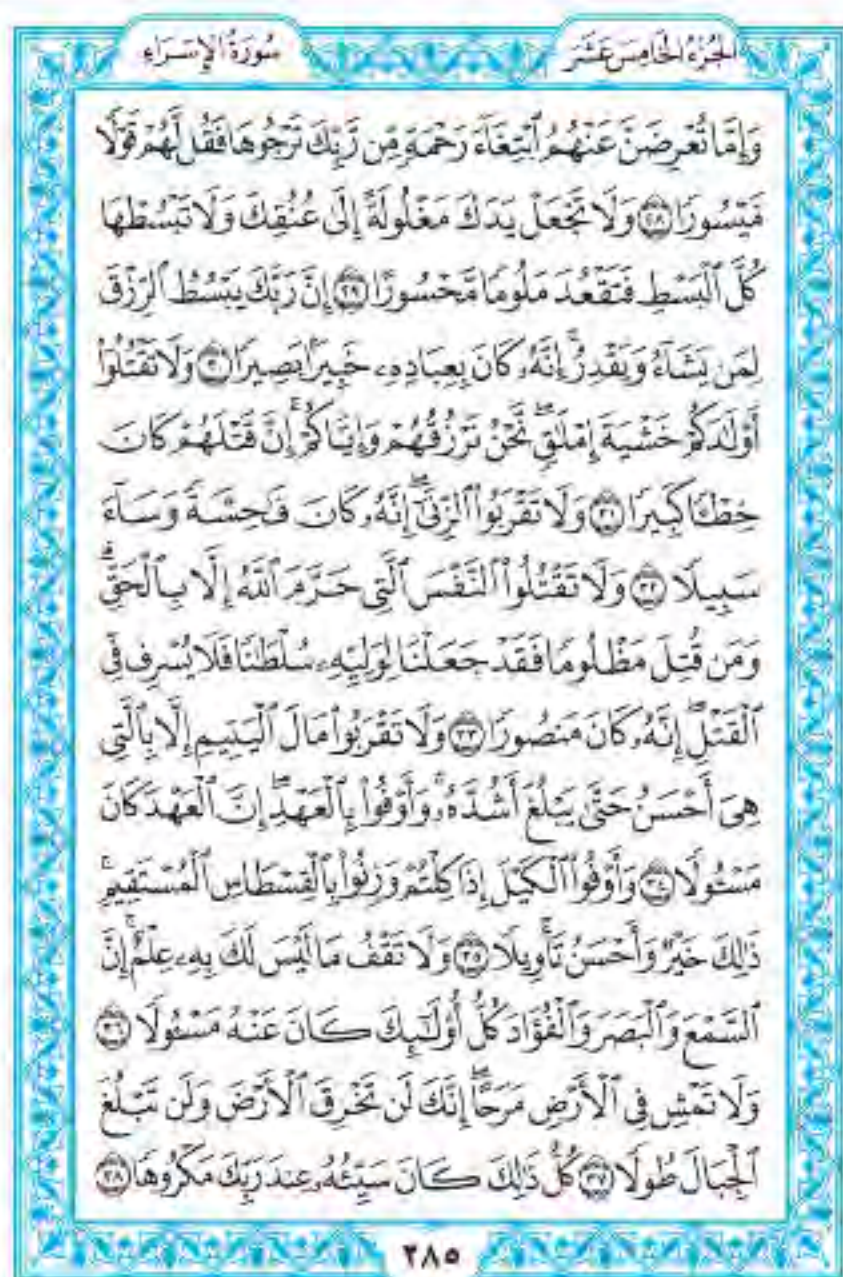 الجزء الخامس عشر
سورة الإسراء
وَإِمَّا تُعْرِضَنَّ عَنْهُمُ ٱبْتِغَآءَ رَحْمَةٍ مِّن رَّبِّكَ تَرْجُوهَا فَقُل لَّهُمْ قَوْلًا
مَّيْسُورًا ٢٨ وَلَا تَجْعَلْ يَدَكَ مَغْلُولَةً إِلَىٰ عُنُقِكَ وَلَا تَبْسُطْهَا
كُلَّ ٱلْبَسْطِ فَتَقْعُدَ مَلُومًا مَّحْسُورًا ٢٩ إِنَّ رَبَّكَ يَبْسُطُ ٱلرِّزْقَ
لِمَن يَشَآءُ وَيَقْدِرُ ۚ إِنَّهُۥ كَانَ بِعِبَادِهِۦ خَبِيرًۢا بَصِيرًا ٣٠ وَلَا تَقْتُلُوٓا۟
أَوْلَـٰدَكُمْ خَشْيَةَ إِمْلَـٰقٍ ۖ نَّحْنُ نَرْزُقُهُمْ وَإِيَّاكُمْ ۚ إِنَّ قَتْلَهُمْ كَانَ
خِطْـًٔا كَبِيرًا ٣١ وَلَا تَقْرَبُوا۟ ٱلزِّنَىٰٓ ۖ إِنَّهُۥ كَانَ فَـٰحِشَةً وَسَآءَ
سَبِيلًا ٣٢ وَلَا تَقْتُلُوا۟ ٱلنَّفْسَ ٱلَّتِى حَرَّمَ ٱللَّهُ إِلَّا بِٱلْحَقِّ ۗ
وَمَن قُتِلَ مَظْلُومًا فَقَدْ جَعَلْنَا لِوَلِيِّهِۦ سُلْطَـٰنًا فَلَا يُسْرِف فِّى
ٱلْقَتْلِ ۖ إِنَّهُۥ كَانَ مَنصُورًا ٣٣ وَلَا تَقْرَبُوا۟ مَالَ ٱلْيَتِيمِ إِلَّا بِٱلَّتِى
هِىَ أَحْسَنُ حَتَّىٰ يَبْلُغَ أَشُدَّهُۥ ۚ وَأَوْفُوا۟ بِٱلْعَهْدِ ۖ إِنَّ ٱلْعَهْدَ كَانَ
مَسْـُٔولًا ٣٤ وَأَوْفُوا۟ ٱلْكَيْلَ إِذَا كِلْتُمْ وَزِنُوا۟ بِٱلْقِسْطَاسِ ٱلْمُسْتَقِيمِ ۚ
ذَٰلِكَ خَيْرٌ وَأَحْسَنُ تَأْوِيلًا ٣٥ وَلَا تَقْفُ مَا لَيْسَ لَكَ بِهِۦ عِلْمٌ ۚ إِنَّ
ٱلسَّمْعَ وَٱلْبَصَرَ وَٱلْفُؤَادَ كُلُّ أُو۟لَـٰٓئِكَ كَانَ عَنْهُ مَسْـُٔولًا ٣٦
وَلَا تَمْشِ فِى ٱلْأَرْضِ مَرَحًا ۖ إِنَّكَ لَن تَخْرِقَ ٱلْأَرْضَ وَلَن تَبْلُغَ
ٱلْجِبَالَ طُولًا ٣٧ كُلُّ ذَٰلِكَ كَانَ سَيِّئُهُۥ عِندَ رَبِّكَ مَكْرُوهًا ٣٨
٢٨٥